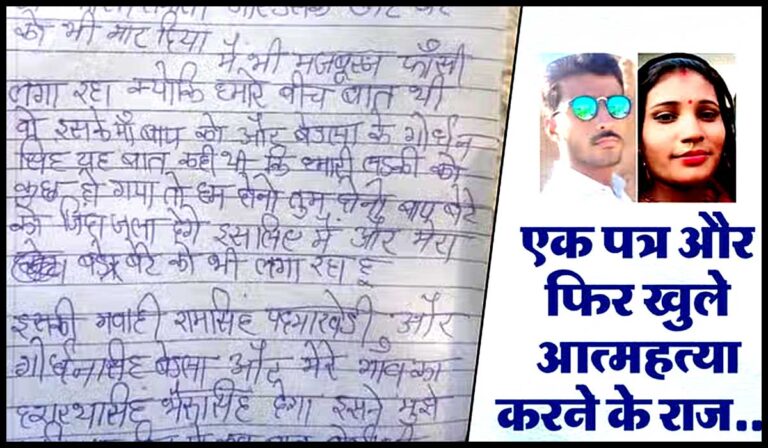 को भी मार दिया
मै भी मजबूरन फाँसी
लगा रहा क्योकि हमारे बीच बात थी
वो इसके माँ बाप को और बेडसा के गोर्धन
सिंह यह बात कही थी कि हमारी लडकी को
कुछ हो गया तो हम दोनो तुम दोनो बाप बेटे
को जिंदा जला देगे इसलिए मै और मेरा
बेटे को भी लगा रहा हू
इसकी गवाही रामसिंह और
गोर्धनसिंह बेडसा और मेरे गाँव का
भैसासिंह देगा इसने मुझे
एक पत्र और
फिर खुले
आत्महत्या
करने के राज..